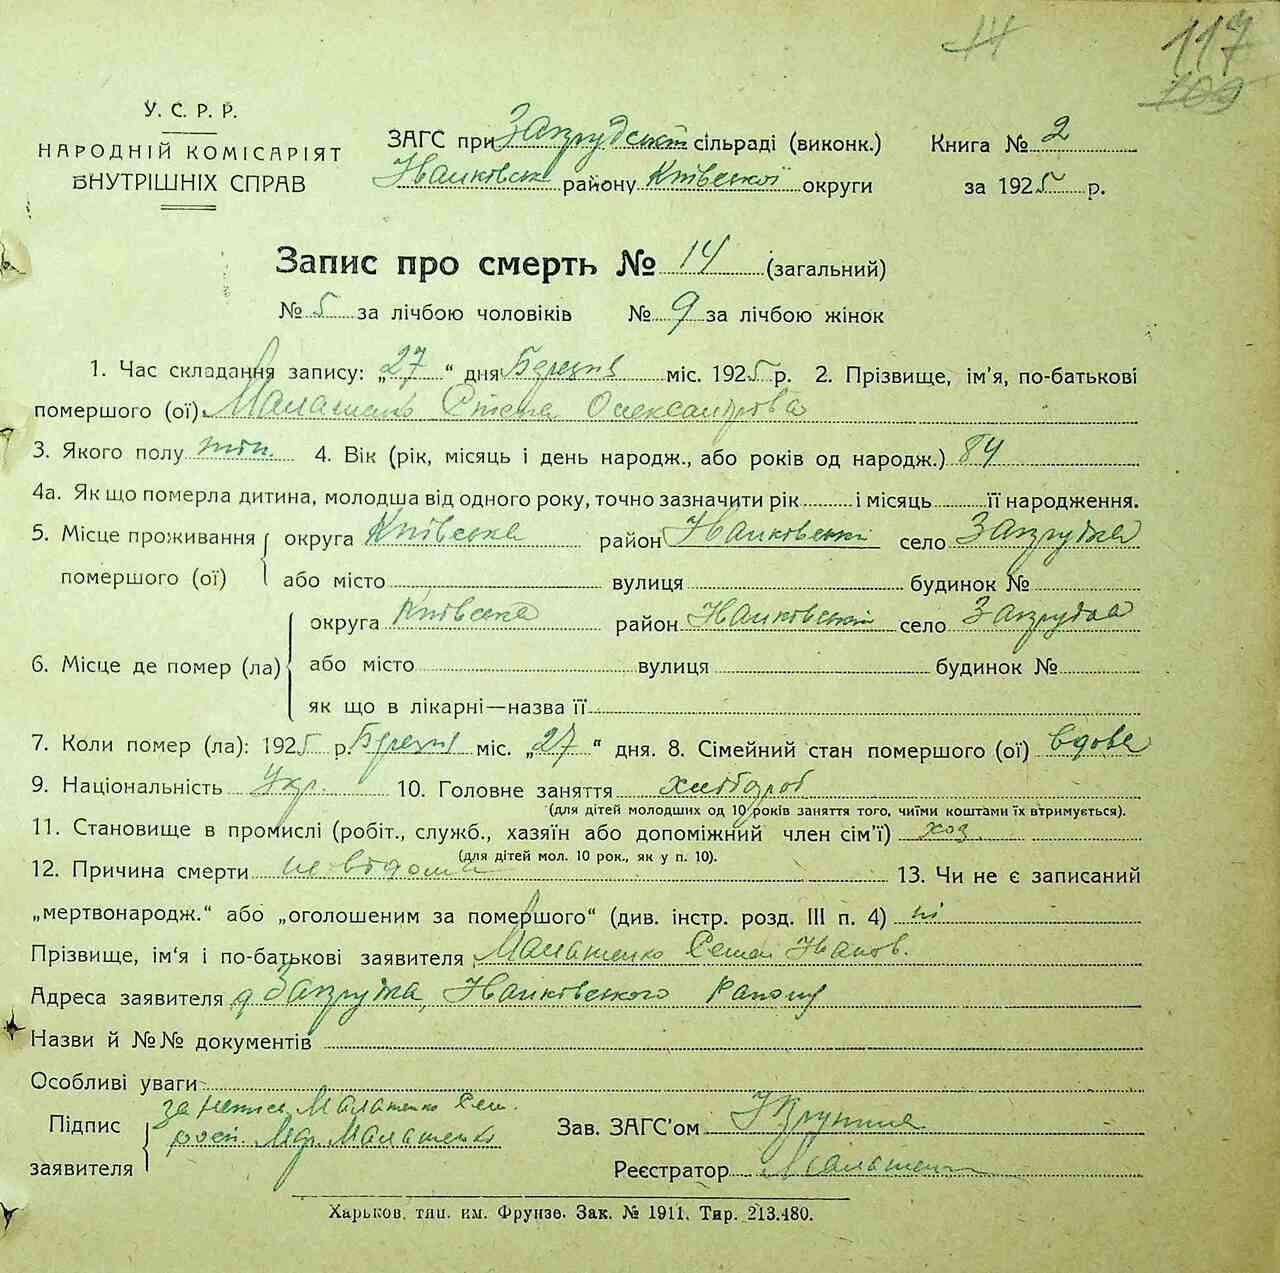 14
117
109
У. С. Р. Р.
НАРОДНІЙ КОМІСАРІЯТ
ВНУТРІШНІХ СПРАВ
ЗАГС при Зазрудській сільраді (виконк.)
району Київської округи
Книга № 2
за 1925 р.
Запис про смерть № 14 (загальний)
№ 5 за лічбою чоловіків № 9 за лічбою жінок
1. Час складання запису: „27“ дня Березня міс. 1925 р. 2. Прізвище, ім'я, по-батькові
помершого (ої) Малашенко Олександрова
3. Якого полу жін. 4. Вік (рік, місяць і день народж., або років од народж.) 84
4а. Як що померла дитина, молодша від одного року, точно зазначити рік і місяць її народження.
5. Місце проживання округа Київська район село Зазрудка
помершого (ої) або місто вулиця будинок №
округа Київська район село Зазрудка
6. Місце де помер (ла) або місто вулиця будинок №
як що в лікарні—назва її
7. Коли помер (ла): 1925 р. Березня міс. „27“ дня. 8. Сімейний стан помершого (ої) вдова
9. Національність Укр. 10. Головне заняття хлібороб
(для дітей молодших од 10 років заняття того, чиїми коштами їх втримується).
11. Становище в промислі (робіт., служб., хазяїн або допоміжний член сім'ї) хоз.
(для дітей мол. 10 рок., як у п. 10).
12. Причина смерти не відома 13. Чи не є записаний
„мертвонародж.“ або „оголошеним за помершого“ (див. інстр. розд. III п. 4) ні
Прізвище, ім'я і по-батькові заявителя Малашенко Іванов.
Адреса заявителя Району
Назви й №№ документів
Особливі уваги
Підпис Малашенко
заявителя Малашенко
Зав. ЗАГС'ом
Реєстратор Малашенко
Харьков, тип. им. Фрунзе. Зак. № 1911. Тир. 213.480.